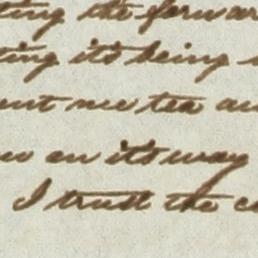 ting the forwar
ting its being
ent me tea an
w on its way
I trust the c